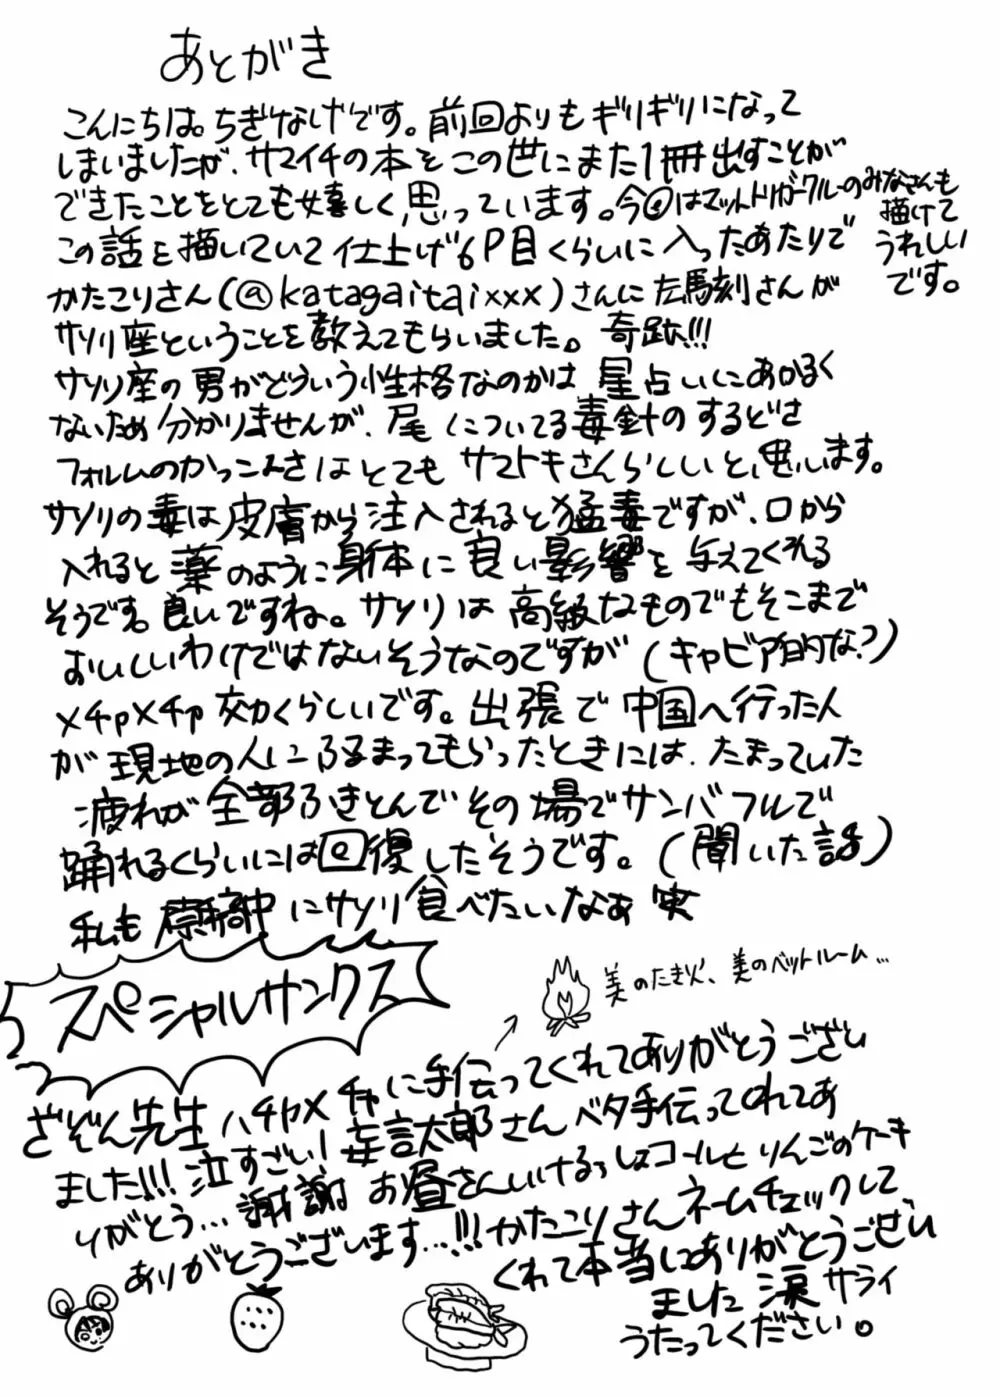 あとがき
こんにちは。ちぎなげです。前回よりもギリギリになって
しまいましたが、サマイチの本をこの世にまた1冊出すことが
できたことをとても嬉しく思っています。今回はマットドリガークルーのみなさんも
描けて
うれしい
です。
この話を描いていて仕上げ6P目くらいに入ったあたりで
かたこりさん(@katagaitaixxx)さんに左馬刻さんが
サソリ座ということを教えてもらいました。奇跡!!!
サソリ座の男がどういう性格なのかは星占いにあかるく
ないため分かりませんが、尾についてる毒針のするどさ
フォルムのかっこよさはとてもサマトキさんらしいと思います。
サソリの毒は皮膚から注入されると猛毒ですが、口から
入れると薬のように身体に良い影響を与えてくれる
そうです。良いですね。サソリは高級なものでもそこまで
おいしいわけではないそうなのですが(キャビア的な?)
メチャメチャ効くらしいです。出張で中国へ行った人
が現地の人にふるまってもらったときには、たまっていた
疲れが全部ふきとんでその場でサンバフルで
踊れるくらいには回復したそうです。(聞いた話)
私も原稿中にサソリ食べたいなあ 笑
スペシャルサンクス
美のたき火、美のベットルーム…
ざぞん先生ハチャメチャに手伝ってくれてありがとうござい
ました!!!泣すごい!妄言太郎さんベタ手伝ってくれてあ
りがとう…謝謝 お昼さんいけるっしょコールとりんごのケーキ
ありがとうございます…!!!かたこりさんネームチェックして
くれて本当にありがとうござい
ました 涙 サライ
うたってください。